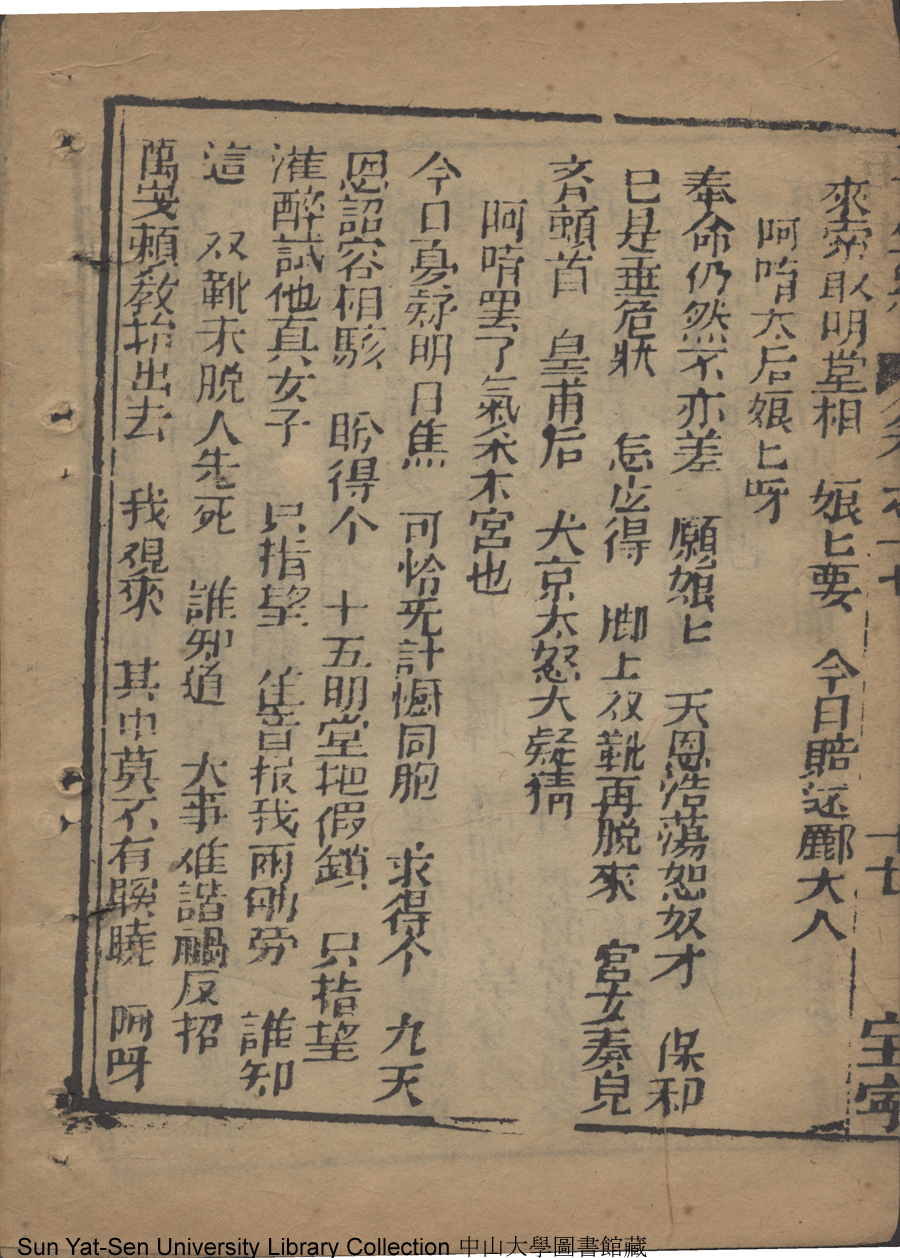 來索取明堂相　娘匕要　今日賠还酈大人
阿唷太后娘匕呀
奉命仍然不亦差　願娘匕　天恩浩蕩恕奴才　保和
已是垂危狀　怎庅得　脚上双靴再脱來　宮女奏皃
斉頓首　皇甫后　大怒大疑猜
阿唷罢了氣杀本宮也
今日憂疑明日焦　可恰旡計慪同胞　求得个　九天
恩詔容相駭　盼得个　十五明堂把假鎖　只指望
灌醉試他真女子　只指望　隹音报我兩劬労　誰知
這　双靴未脱人先死　誰知道　大事难諧禍反招
萬安頼教抬出去　我覌來　其中莫不有蹊曉　阿呀
Sun Yat-Sen University Library Collection 中山大學圖書館藏